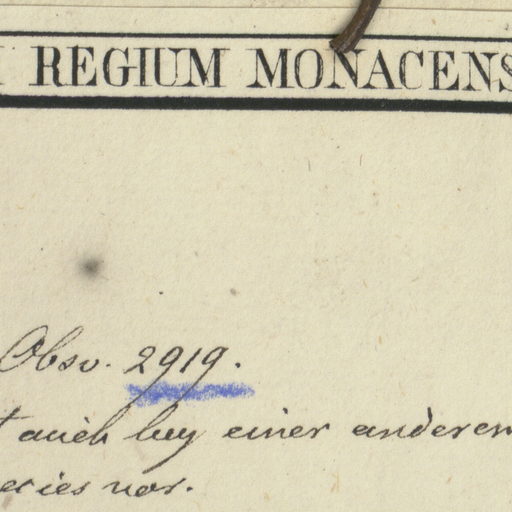 REGIUM MONACENS
Obsv. 2919.
t auch bey einer anderen
ecies vor.